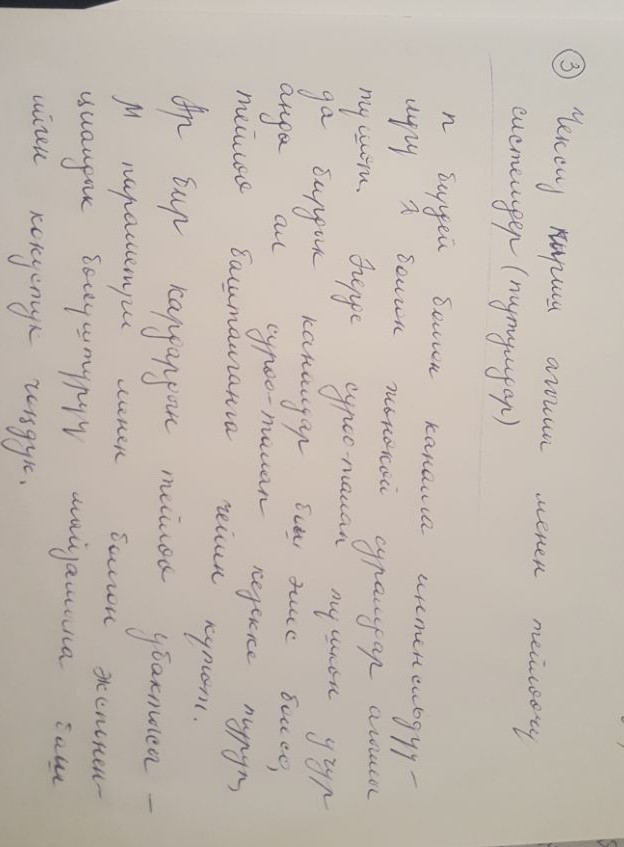 ③ Чексиз кириш агыши менен тейлөөчү
системдер (тутумдар)
n бирдей болгон каналга интенсивдүү-
лүгү λ болгон жөнөкөй суралдар агышы
түшөт. Эгерде суроо-талап түшкөн учур
да бирдык каналдар бош эмес болсо,
анда ал суроо-талап кезекке туруп,
тейлөө башталганга чейин күтөт.
Ар бир кардардын тейлөө убактысы –
M параметри менен болгон экспонен-
циалдык бөлүштүрүү мыйзамына баш
ийген кокустук чоңдук.